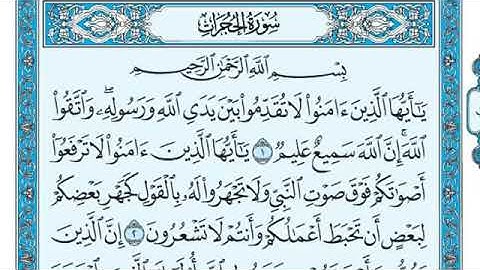 سُورَةُ الحُجُرَاتِ
بِسْمِ اللَّهِ الرَّحْمَٰنِ الرَّحِيمِ
يَٰٓأَيُّهَا الَّذِينَ ءَامَنُوا۟ لَا تُقَدِّمُوا۟ بَيْنَ يَدَيِ اللَّهِ وَرَسُولِهِۦ ۖ وَاتَّقُوا۟
اللَّهَ ۚ إِنَّ اللَّهَ سَمِيعٌ عَلِيمٌ ١ يَٰٓأَيُّهَا الَّذِينَ ءَامَنُوا۟ لَا تَرْفَعُوٓا۟
أَصْوَٰتَكُمْ فَوْقَ صَوْتِ النَّبِيِّ وَلَا تَجْهَرُوا۟ لَهُۥ بِالْقَوْلِ كَجَهْرِ بَعْضِكُمْ
لِبَعْضٍ أَن تَحْبَطَ أَعْمَٰلُكُمْ وَأَنتُمْ لَا تَشْعُرُونَ ٢ إِنَّ الَّذِينَ